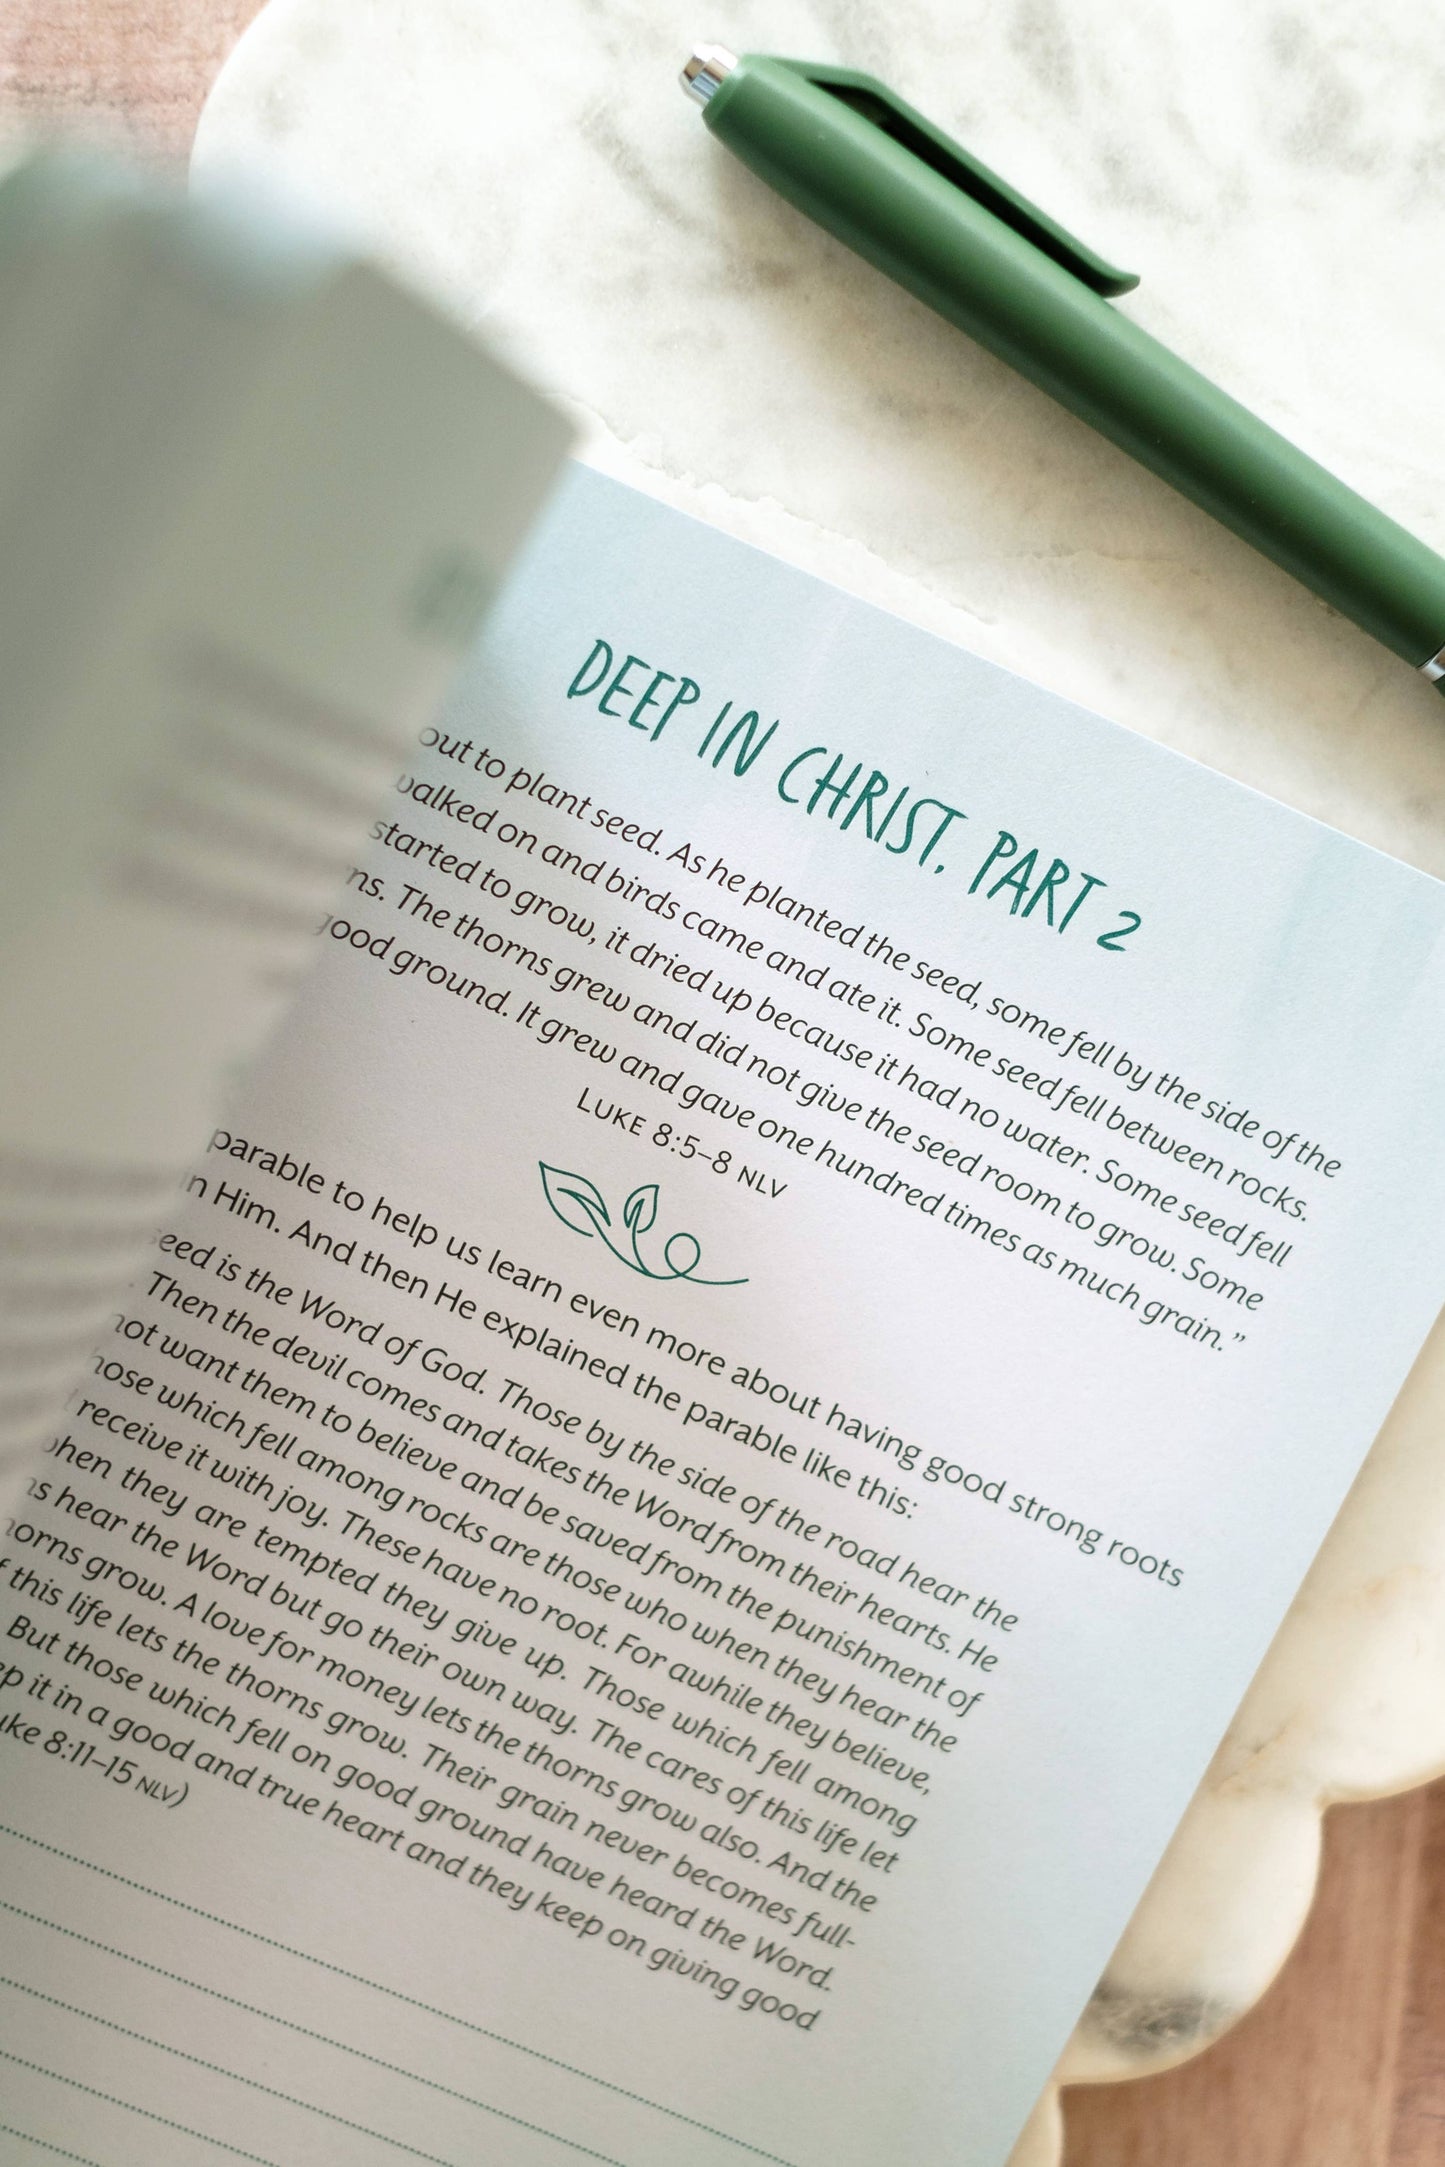 DEEP IN CHRIST, PART 2
out to plant seed. As he planted the seed, some fell by the side of the
walked on and birds came and ate it. Some seed fell between rocks.
started to grow, it dried up because it had no water. Some seed fell
ns. The thorns grew and did not give the seed room to grow. Some
good ground. It grew and gave one hundred times as much grain.”
LUKE 8:5–8 NLV
parable to help us learn even more about having good strong roots
in Him. And then He explained the parable like this:
seed is the Word of God. Those by the side of the road hear the
Then the devil comes and takes the Word from their hearts. He
not want them to believe and be saved from the punishment of
hose which fell among rocks are those who when they hear the
receive it with joy. These have no root. For awhile they believe,
when they are tempted they give up. Those which fell among
ns hear the Word but go their own way. The cares of this life let
horns grow. A love for money lets the thorns grow also. And the
f this life lets the thorns grow. Their grain never becomes full-
But those which fell on good ground have heard the Word.
ep it in a good and true heart and they keep on giving good
uke 8:11–15 NLV)